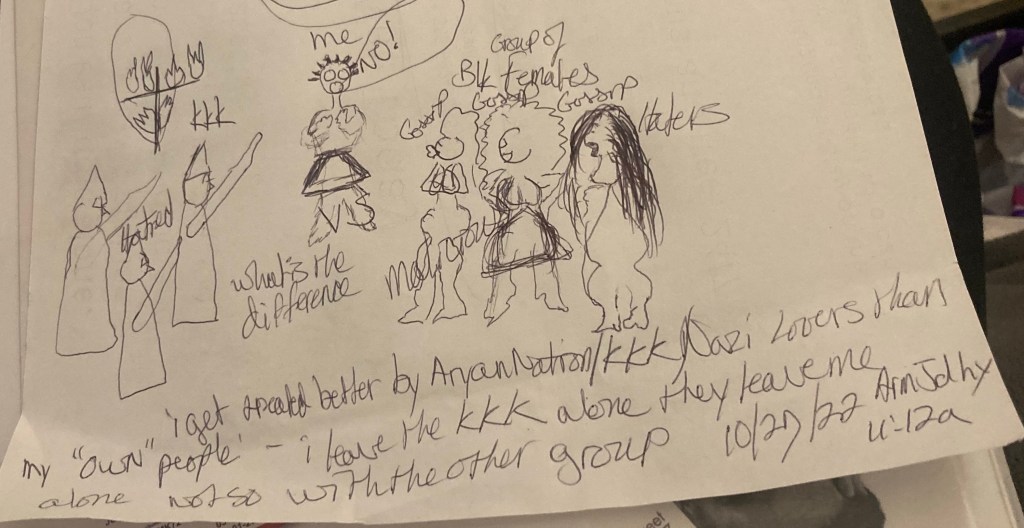 me
NO!
Group of
Blk females
Gossip
Gossip
Gossip
Haters
KKK
Hatred
VS
what's the
difference
i get treated better by Aryan Nation/KKK/Nazi Lovers than
my "own" people - i leave the KKK alone they leave me
alone not so with the other group
10/27/22